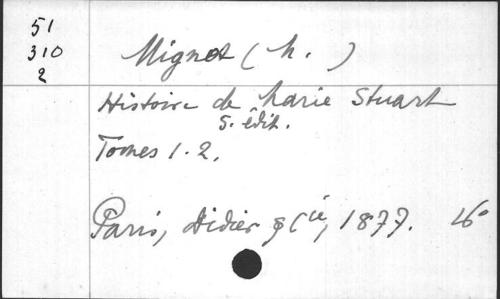 51
310
2
Mignet (M.)
Histoire de Marie Stuart
5. édit.
Tomes 1.2.
Paris, Didier & Cie, 1877. 16°